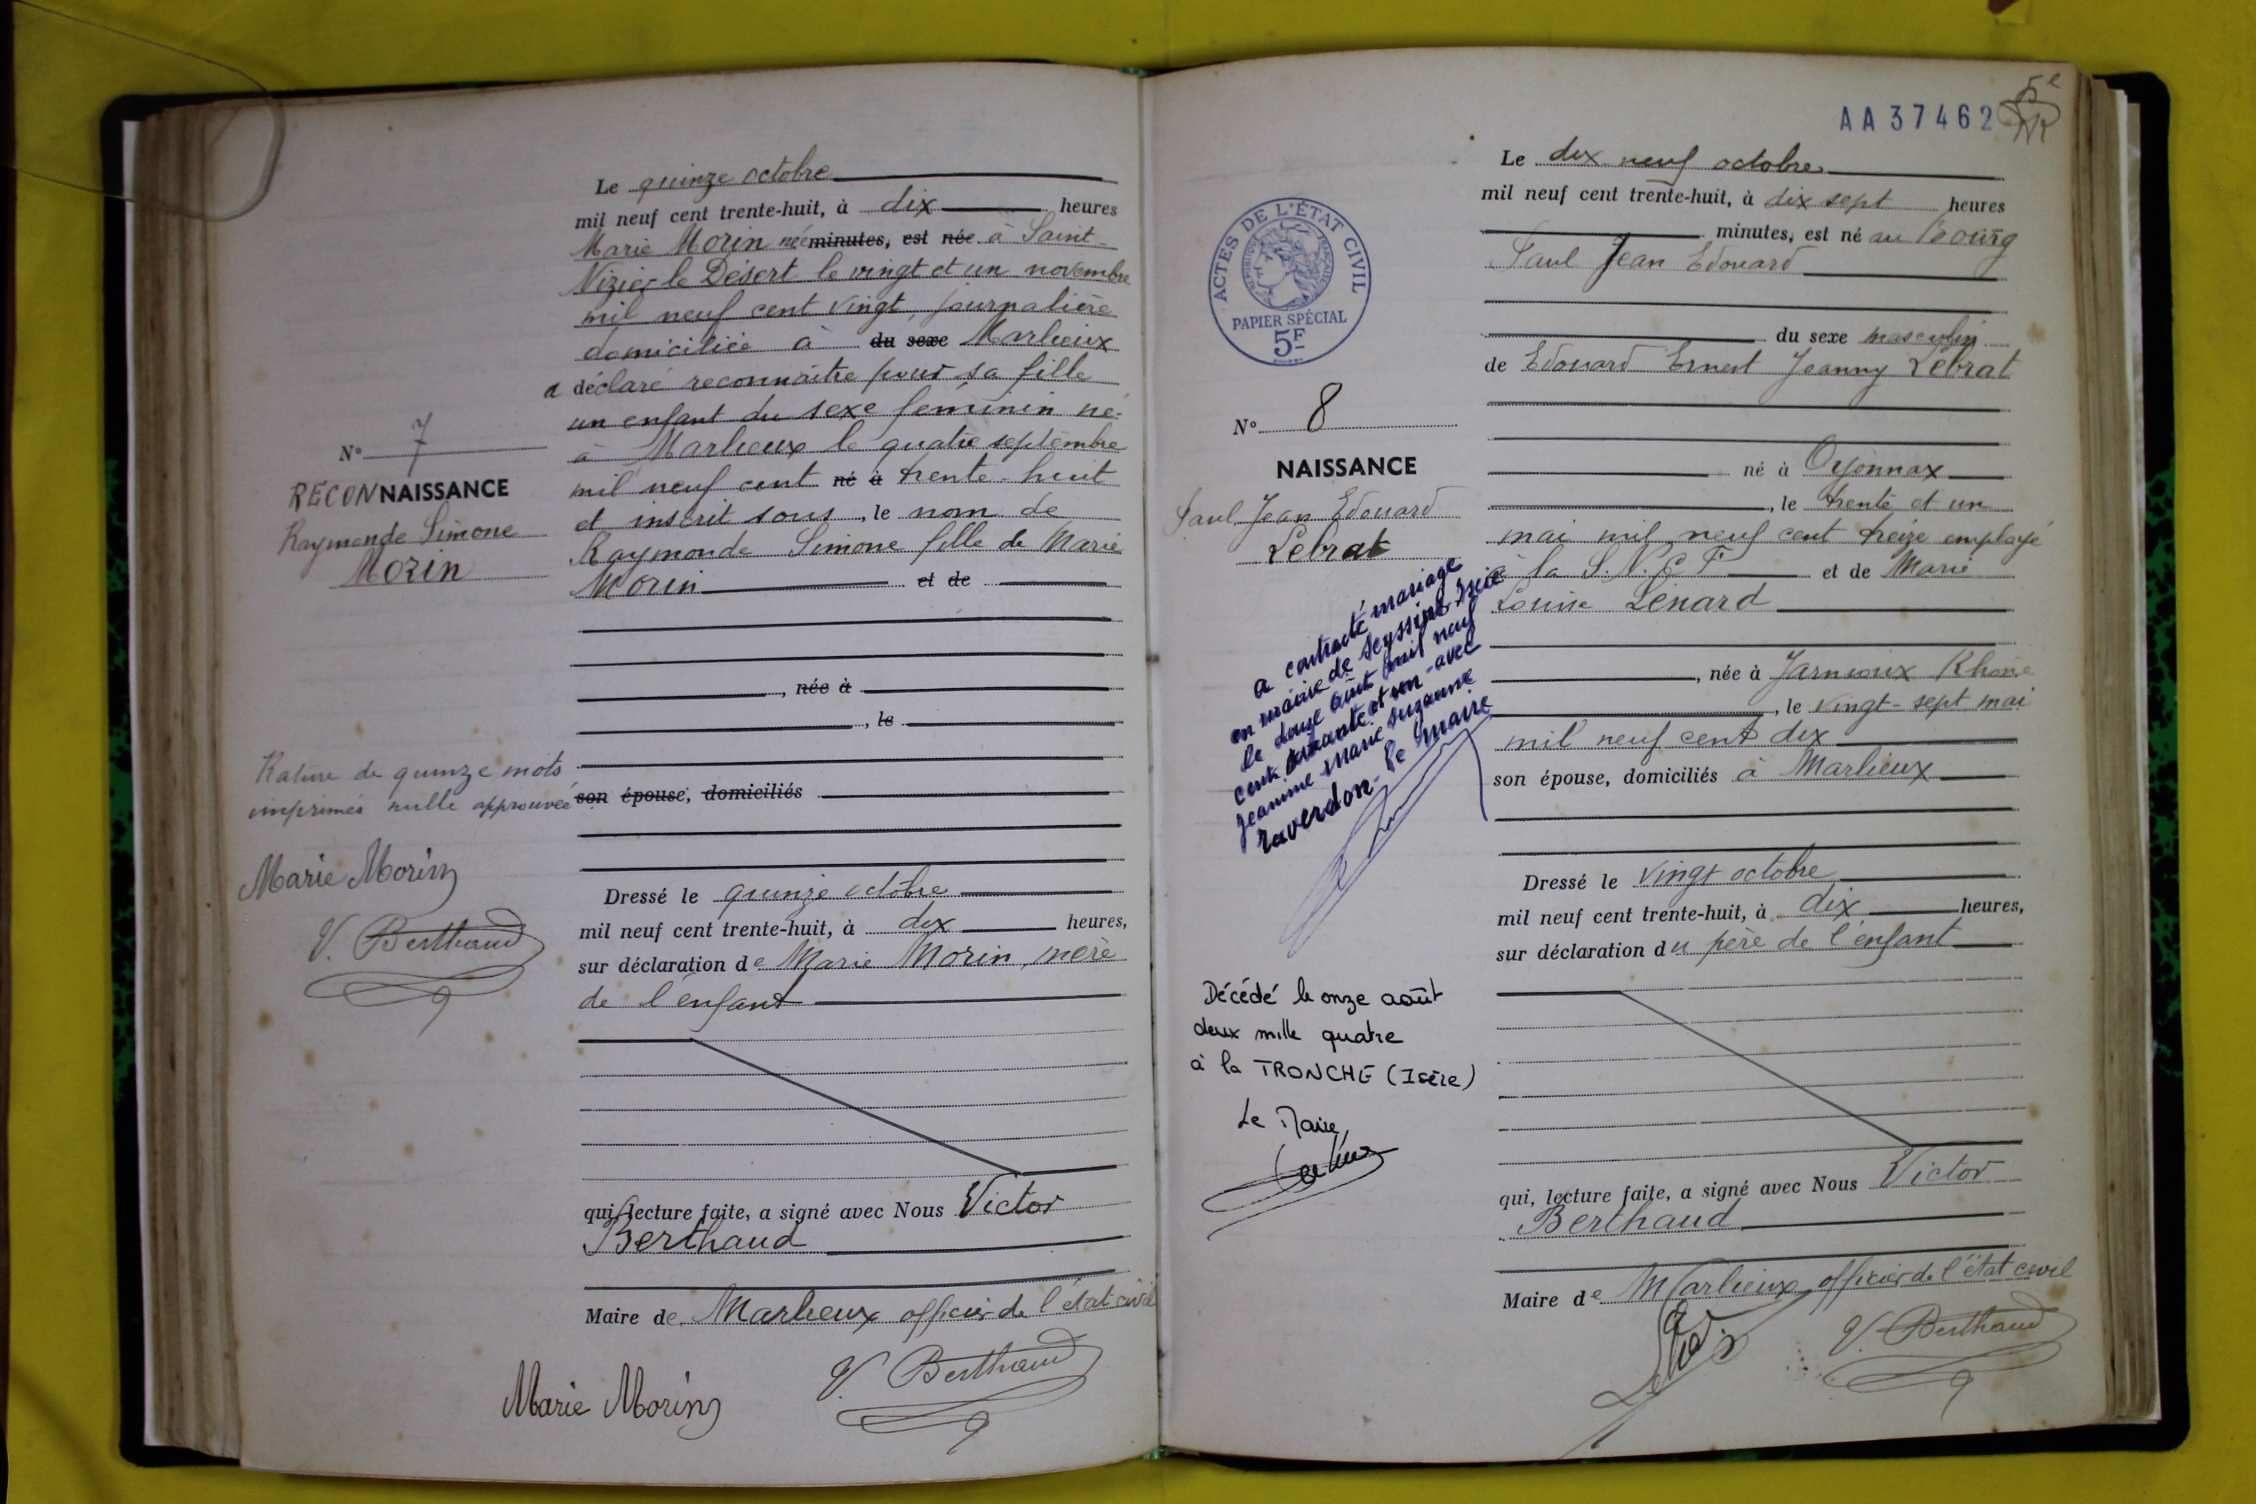 Le quinze octobre
mil neuf cent trente-huit, à dix heures
Marie Morin née minutes, est née à Saint-
Nizier le Désert le vingt et un novembre
mil neuf cent vingt, journalière
domiciliée à du sexe Marlieux
a déclaré reconnaître pour sa fille
un enfant du sexe féminin né
à Marlieux le quatre septembre
mil neuf cent né à trente-huit
et inscrit sous, le nom de
Raymonde Simone fille de Marie
Morin et de
, née à
, le
son épouse, domiciliés
Dressé le quinze octobre
mil neuf cent trente-huit, à dix heures,
sur déclaration de Marie Morin, mère
de l'enfant
qui, lecture faite, a signé avec Nous Victor
Berthaud
Maire de Marlieux officier de l'état civil
Marie Morin
V. Berthaud
N° 7
RECONNAISSANCE
Raymonde Simone
Morin
Rature de quinze mots
imprimés nulle approuvée
Marie Morin
V. Berthaud
AA37462
Le dix neuf octobre
mil neuf cent trente-huit, à dix sept heures
minutes, est né au bourg
Paul Jean Edouard
du sexe masculin
de Edouard Ernest Jeanny Lebrat
né à Oyonnax
, le trente et un
mai mil neuf cent treize employé
à la S.N.C.F et de Marie
Louise Lénard
, née à Jarnioux Rhône
, le vingt-sept mai
mil neuf cent dix
son épouse, domiciliés à Marlieux
Dressé le vingt octobre
mil neuf cent trente-huit, à dix heures,
sur déclaration du père de l'enfant
qui, lecture faite, a signé avec Nous Victor
Berthaud
Maire de Marlieux officier de l'état civil
V. Berthaud
ACTES DE L'ÉTAT CIVIL
RÉPUBLIQUE FRANÇAISE
PAPIER SPÉCIAL
5F
N° 8
NAISSANCE
Paul Jean Edouard
Lebrat
a contracté mariage
en mairie de Seyssins-Isère
le douze août mil neuf
cent soixante et un - avec
Jeanne Marie Suzanne
Raverdon - le Maire
Décédé le onze août
deux mille quatre
à la TRONCHE (Isère)
Le Maire,